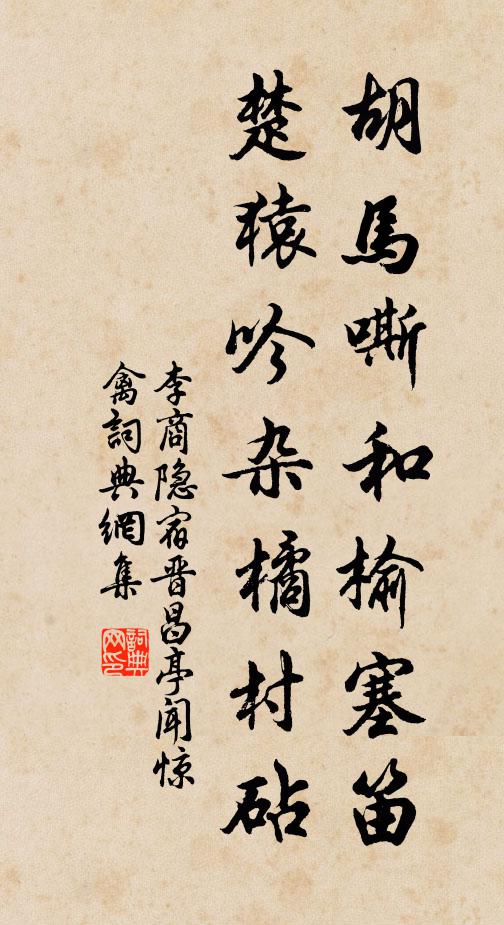 胡馬嘶和榆塞笛
楚猿吟杂橘村砧
李商隐宿晋昌亭闻惊
禽詞典網集
詞典
网印